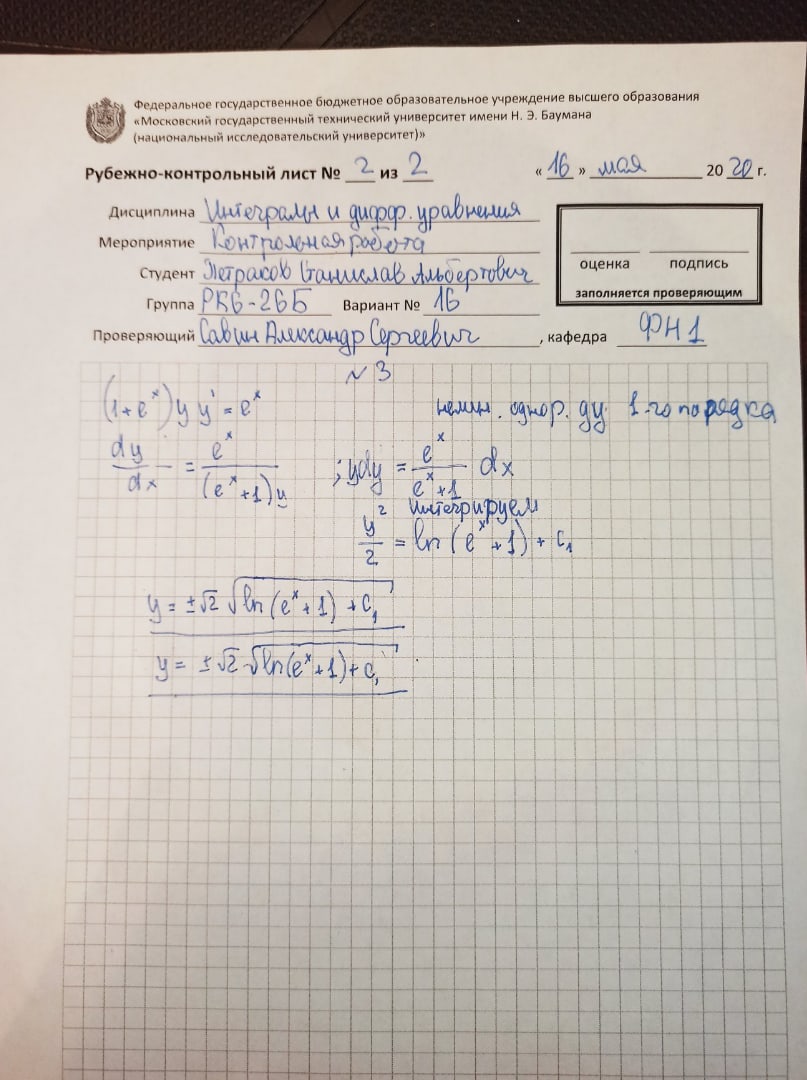 Федеральное государственное бюджетное образовательное учреждение высшего образования
«Московский государственный технический университет имени Н. Э. Баумана
(национальный исследовательский университет)»
Рубежно-контрольный лист № 2 из 2 « 16 » мая 20 20 г.
Дисциплина Интегралы и дифф. уравнения
Мероприятие Контрольная работа
Студент Петраков Станислав Альбертович
Группа РК6-26Б Вариант № 16
Проверяющий Савин Александр Сергеевич , кафедра ФН1
оценка подпись
заполняется проверяющим
№ 3
(1+e^x) y y' = e^x нелин. однор. ду. 1-го порядка
dy/dx = e^x/((e^x+1)y) ; ydy = e^x/(e^x+1) dx
Интегрируем
y^2/2 = ln(e^x+1) + C_1
y = ±√2 √(ln(e^x+1) + C_1)
y = ±√2 · √(ln(e^x+1) + C_1)